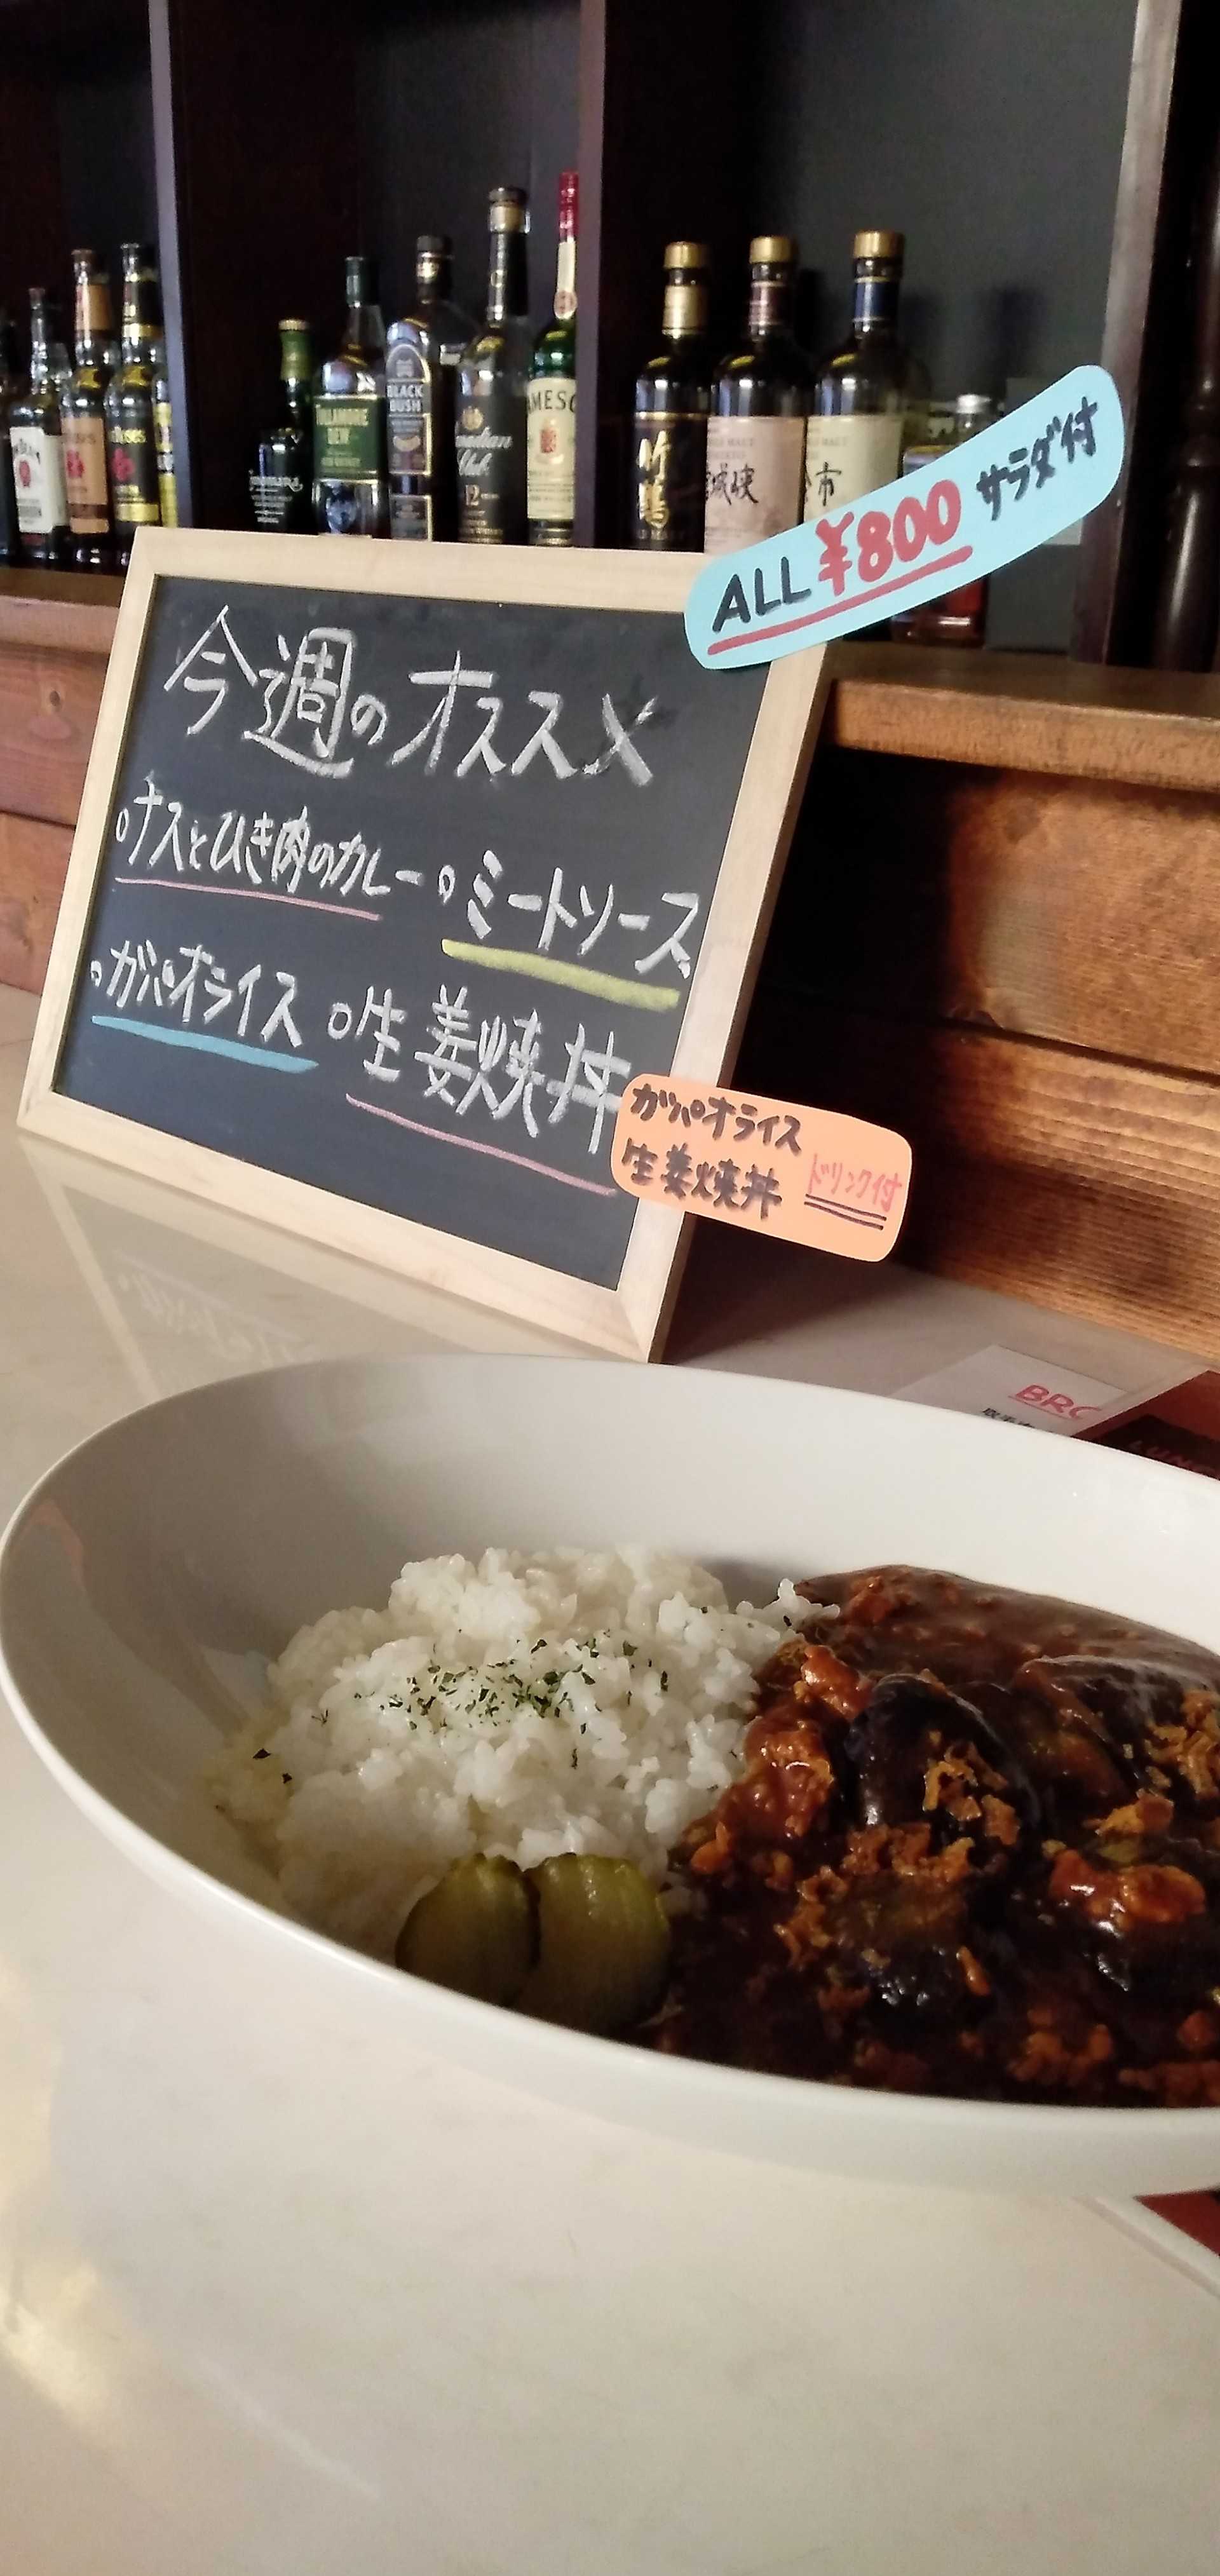 TULLAMORE
DEW
BLACK
BUSH
Canadian
Club
12
JAMESON
竹鶴
宮城峡
余市
ALL ¥800 サラダ付
今週のオススメ
ナスとひき肉のカレー
ミートソース
ガパオライス
生姜焼丼
ガパオライス
生姜焼丼 ドリンク付
BRC